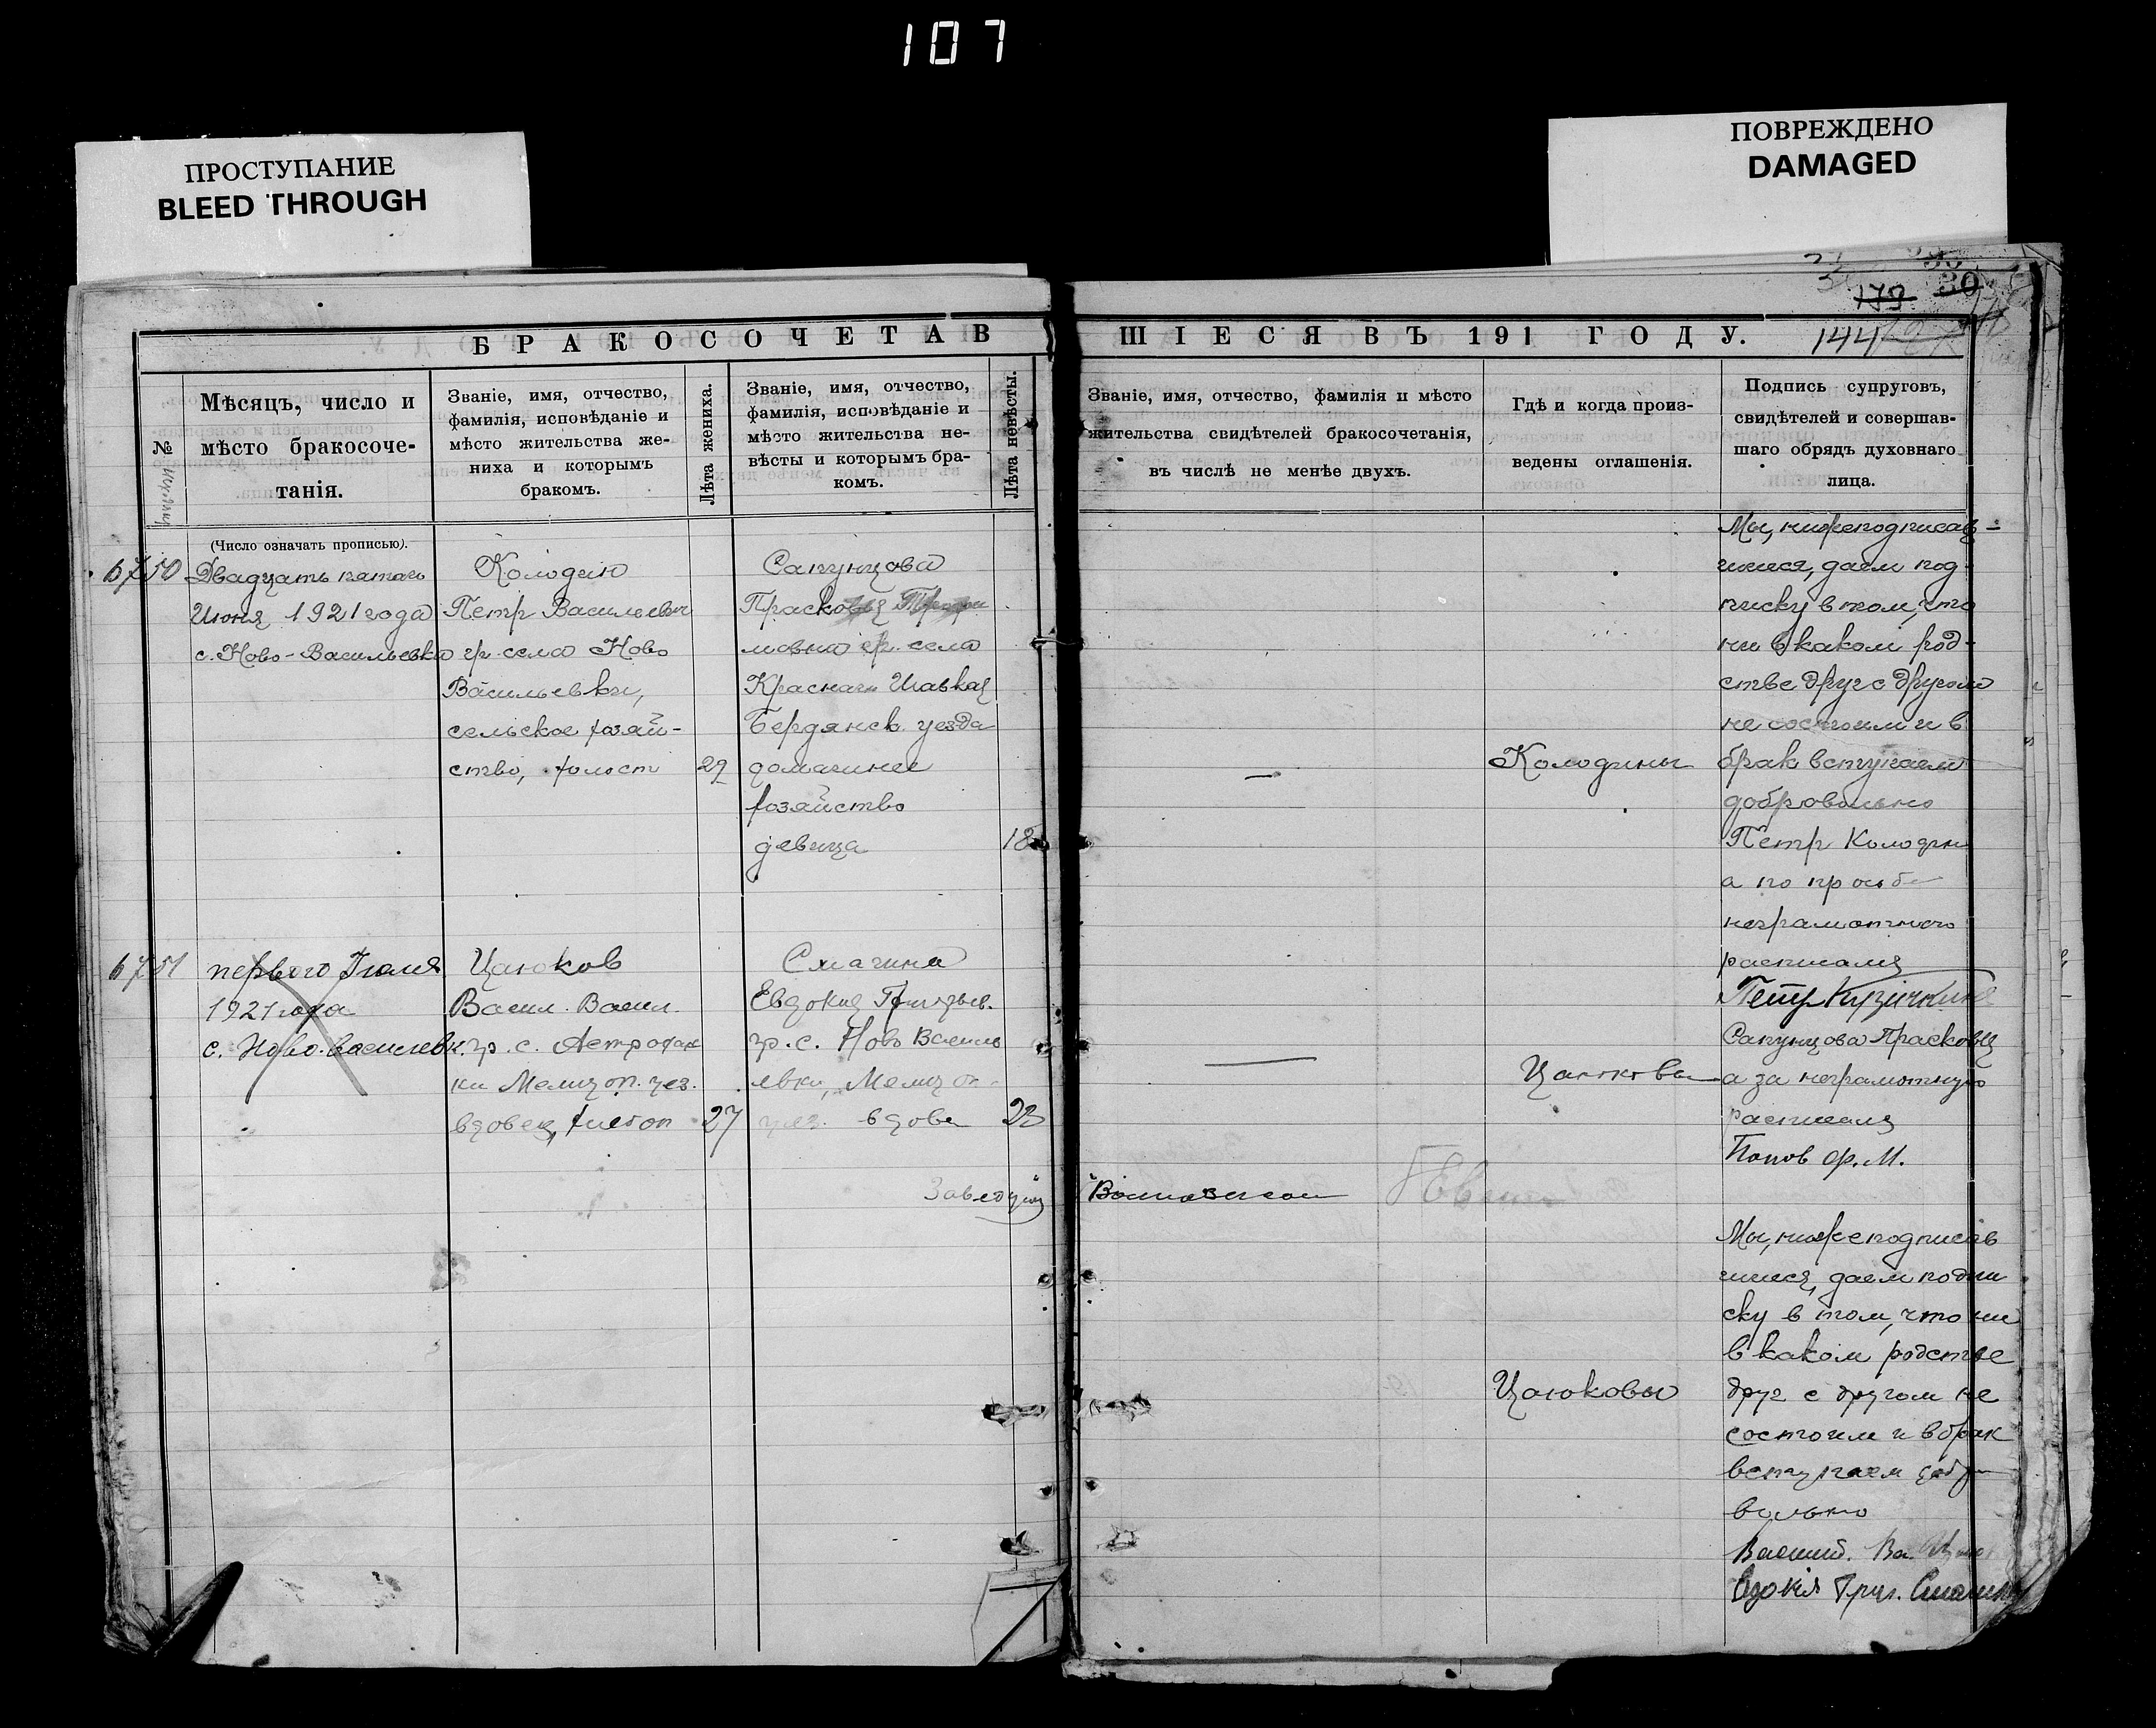 107
ПРОСТУПАНИЕ
BLEED THROUGH
ПОВРЕЖДЕНО
DAMAGED
30
179
144
БРАКОСОЧЕТАВ
ШІЕСЯ ВЪ 191 ГОДУ.
№
Мѣсяцъ, число и
мѣсто бракосоче-
танія.
Званіе, имя, отчество,
фамилія, исповѣданіе и
мѣсто жительства же-
ниха и которымъ
бракомъ.
Лѣта жениха.
Званіе, имя, отчество,
фамилія, исповѣданіе и
мѣсто жительства не-
вѣсты и которымъ бра-
комъ.
Лѣта невѣсты.
Званіе, имя, отчество, фамилія и мѣсто
жительства свидѣтелей бракосочетанія,
въ числѣ не менѣе двухъ.
Гдѣ и когда произ-
ведены оглашенія.
Подпись супруговъ,
свидѣтелей и совершав-
шаго обрядъ духовнаго
лица.
(Число означать прописью).
50
Двадцать пятого
Июня 1921 года
с. Ново-Васильевка
Колодин
Петр Васильевич
гр. села Ново
Васильевки,
сельское хозяй-
ство, холост
29
Сапунцова
Прасковья
мовна гр. села
Бердянск. уезда
домашнее
хозяйство
девица
18
Колодины
Мы, нижеподписав-
шиеся, даем под-
писку в том, что
ни в каком род-
стве друг с другом
не состоим и в
брак вступаем
добровольно
Петр Колодин
а по просьбе
неграмотного
расписался
Петр
Сапунцова Прасковья
а за неграмотную
расписался
Попов Ф. М.
51
первого Июля
1921 года
с. Ново-Василевк.
Цаюков
Васил. Васил.
гр. с. Астрахан
ки Мелитоп. уез.
вдовец,
27
Смагина
Евдокия Григорьев.
гр. с. Ново Василь
евки, Мелитоп.
уез. вдова
23
Цаюковы
Заведующ
Мы, нижеподписав
шиеся, даем подпи
ску в том, что ни
в каком родстве
Цаюковы
друг с другом не
состоим и в брак
вступаем добро
вольно
Василий. Ва.
Евдокія Григ. Смагин